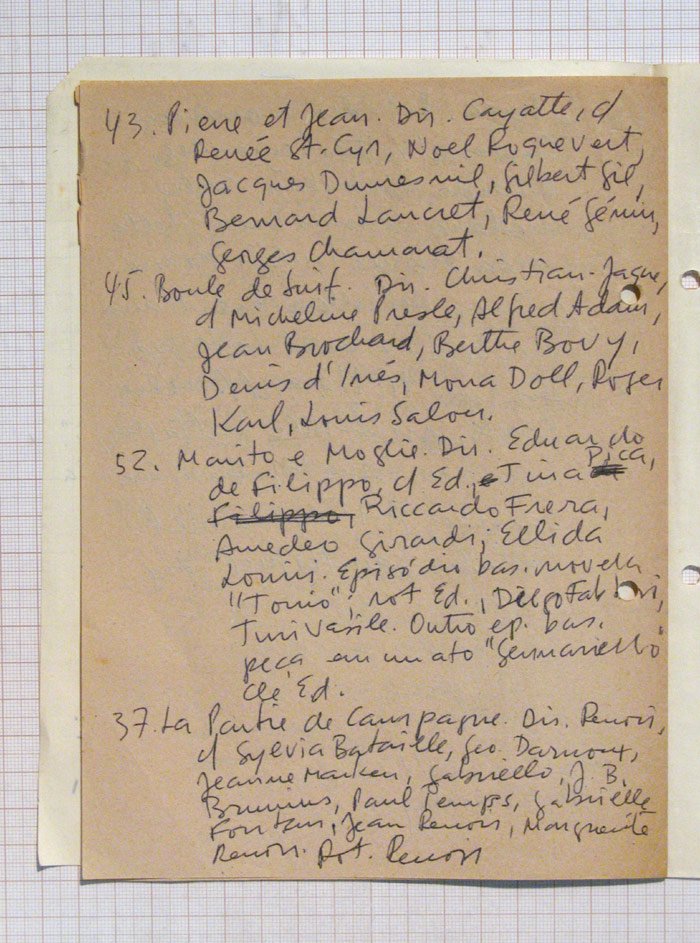 43. Pierre et Jean. Dir. Cayatte, c/
Renée St. Cyr, Noel Roquevert,
Jacques Dumesnil, Gilbert Gil,
Bernard Lancret, René Génin,
Georges Chamarat.
45. Boule de Suif. Dir. Christian-Jaque,
c/ Micheline Presle, Alfred Adam,
Jean Brochard, Berthe Bovy,
Denis d'Inés, Mona Doll, Roger
Karl, Louis Salou.
52. Marito e Moglie. Dir. Eduardo
de Filippo, c/ Ed., e Tina de Pica,
Filippo, Riccardo Frera,
Amedeo Girardi, Ellida
Lorini. Episódio bas. novela
"Tonio"; rot Ed., Diego Fabbri,
Turi Vasile. Outro ep. bas.
peça em um ato "Gennariello"
de Ed.
37. La Partie de Campagne. Dir. Renoir,
c/ Sylvia Bataille, Geo. Darnoux,
Jeanne Marken, Gabriello, J. B.
Brunius, Paul Temps, Gabrielle
Fontan, Jean Renoir, Marguerite
Renoir. Rot. Renoir